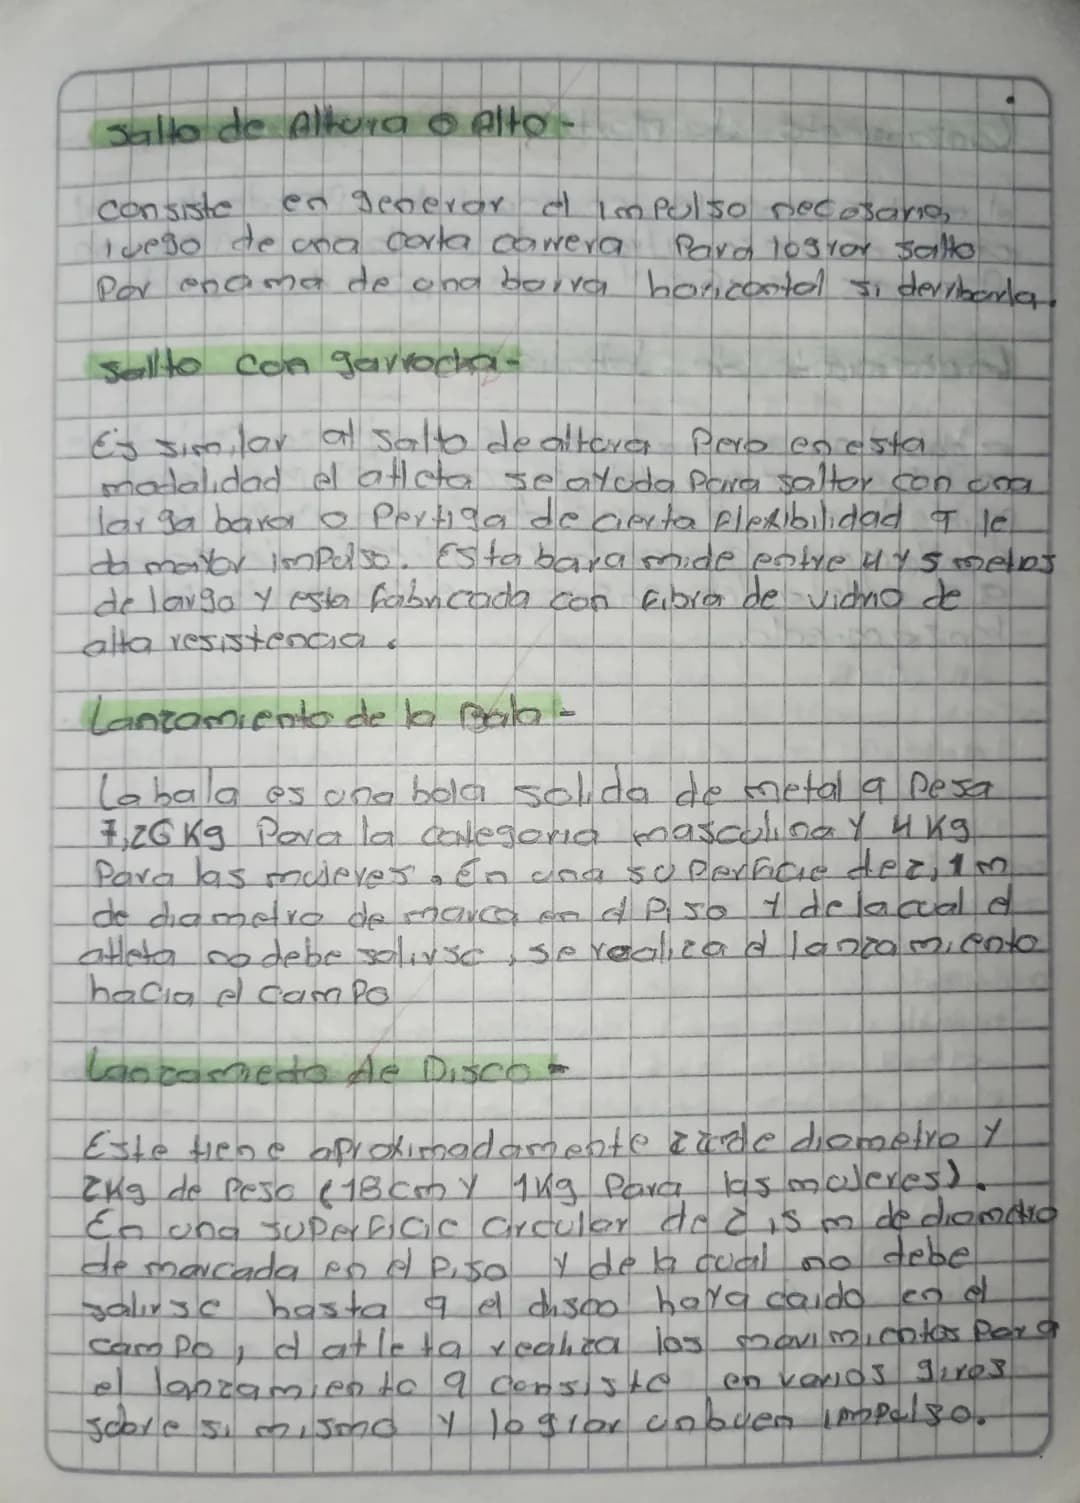 Salto de Altura o Alto -
consiste en generar el impulso necesario,
luego de una corta carrera Para lograr salto
Por encima de una barra horizontal si derribarla.
Salto con garrocha -
Es similar al salto de altura Pero en esta
modalidad el atleta se ayuda Para saltar con una
larga bara o Pertiga de cierta flexibilidad q le
da mayor impulso. Esta bara mide entre 4 y 5 metros
de largo y esta fabricada con fibra de vidrio de
alta resistencia.
Lanzamiento de la Bala -
La bala es una bola solida de metal q Pesa
7,26 Kg Para la categoria masculina y 4 Kg
Para las mujeres. En una superficie de 2,1 m
de diametro de marca en el Piso y de la cual el
atleta no debe salirse, se realiza el lanzamiento
hacia el campo
Lanzamieto de Disco -
Este tiene aproximadamente de diametro y
2Kg de Peso (18 cm y 1Kg Para las mujeres).
En una superficie circular de 2,5 m de diametro
de marcada en el Piso y de la cual no debe
salirse hasta q el disco haya caido en el
campo, el atleta realiza los movimientos Para
el lanzamiento q consiste en varios giros
sobre si mismo y lograr un buen impulso.